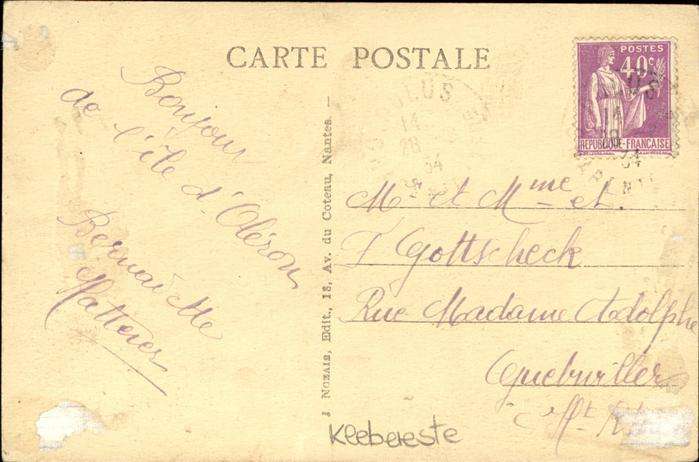 CARTE POSTALE
Bonjour
de l'île d'Oléron
Bernadette
Matterer
J NOZAIS, Edit., 18, Av. du Coteau, Nantes. –
POSTES
40c
REPUBLIQUE FRANÇAISE
OLUS
14
28
34
M. et Mme et.
Gottscheck
Rue Madame Adolphe
Guebviller
Klebereste